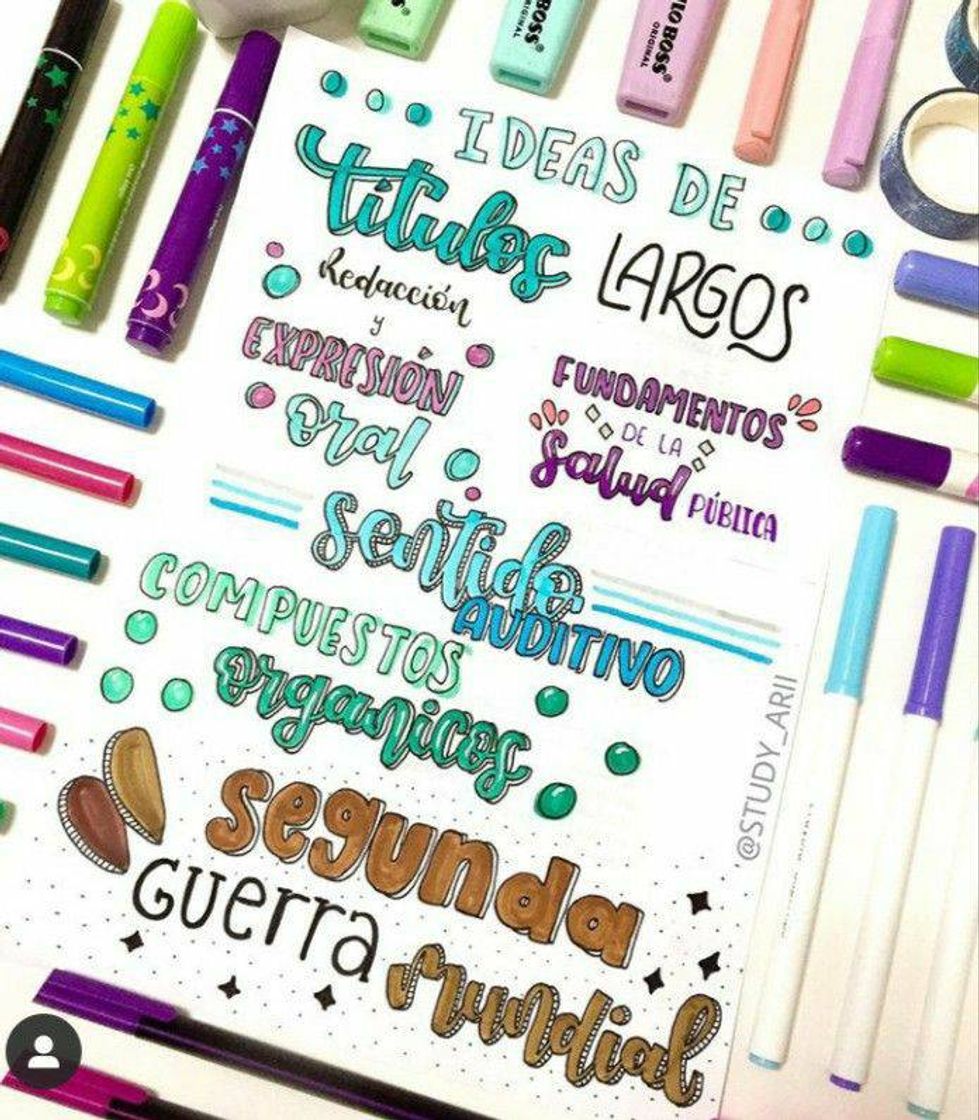 BOSS
ORIGINAL
STABILO BOSS
ORIGINAL
IDEAS DE
títulos
LARGOS
Redacción
y
EXPRESIÓN
oral
FUNDAMENTOS
DE LA
Salud
PÚBLICA
sentido
AUDITIVO
COMPUESTOS
organicos
segunda
GUERRA
mundial
@STUDY_ARII